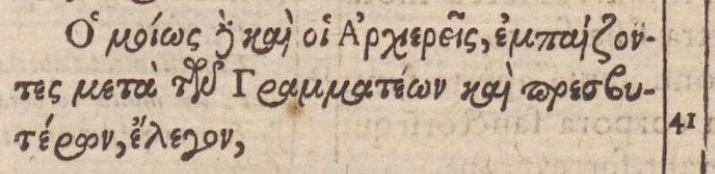 Ὁμοίως δὲ καὶ οἱ Ἀρχιερεῖς, ἐμπαίζον-
τες μετὰ τῶν Γραμματέων καὶ πρεσβυ-
τέρων, ἔλεγον,
41